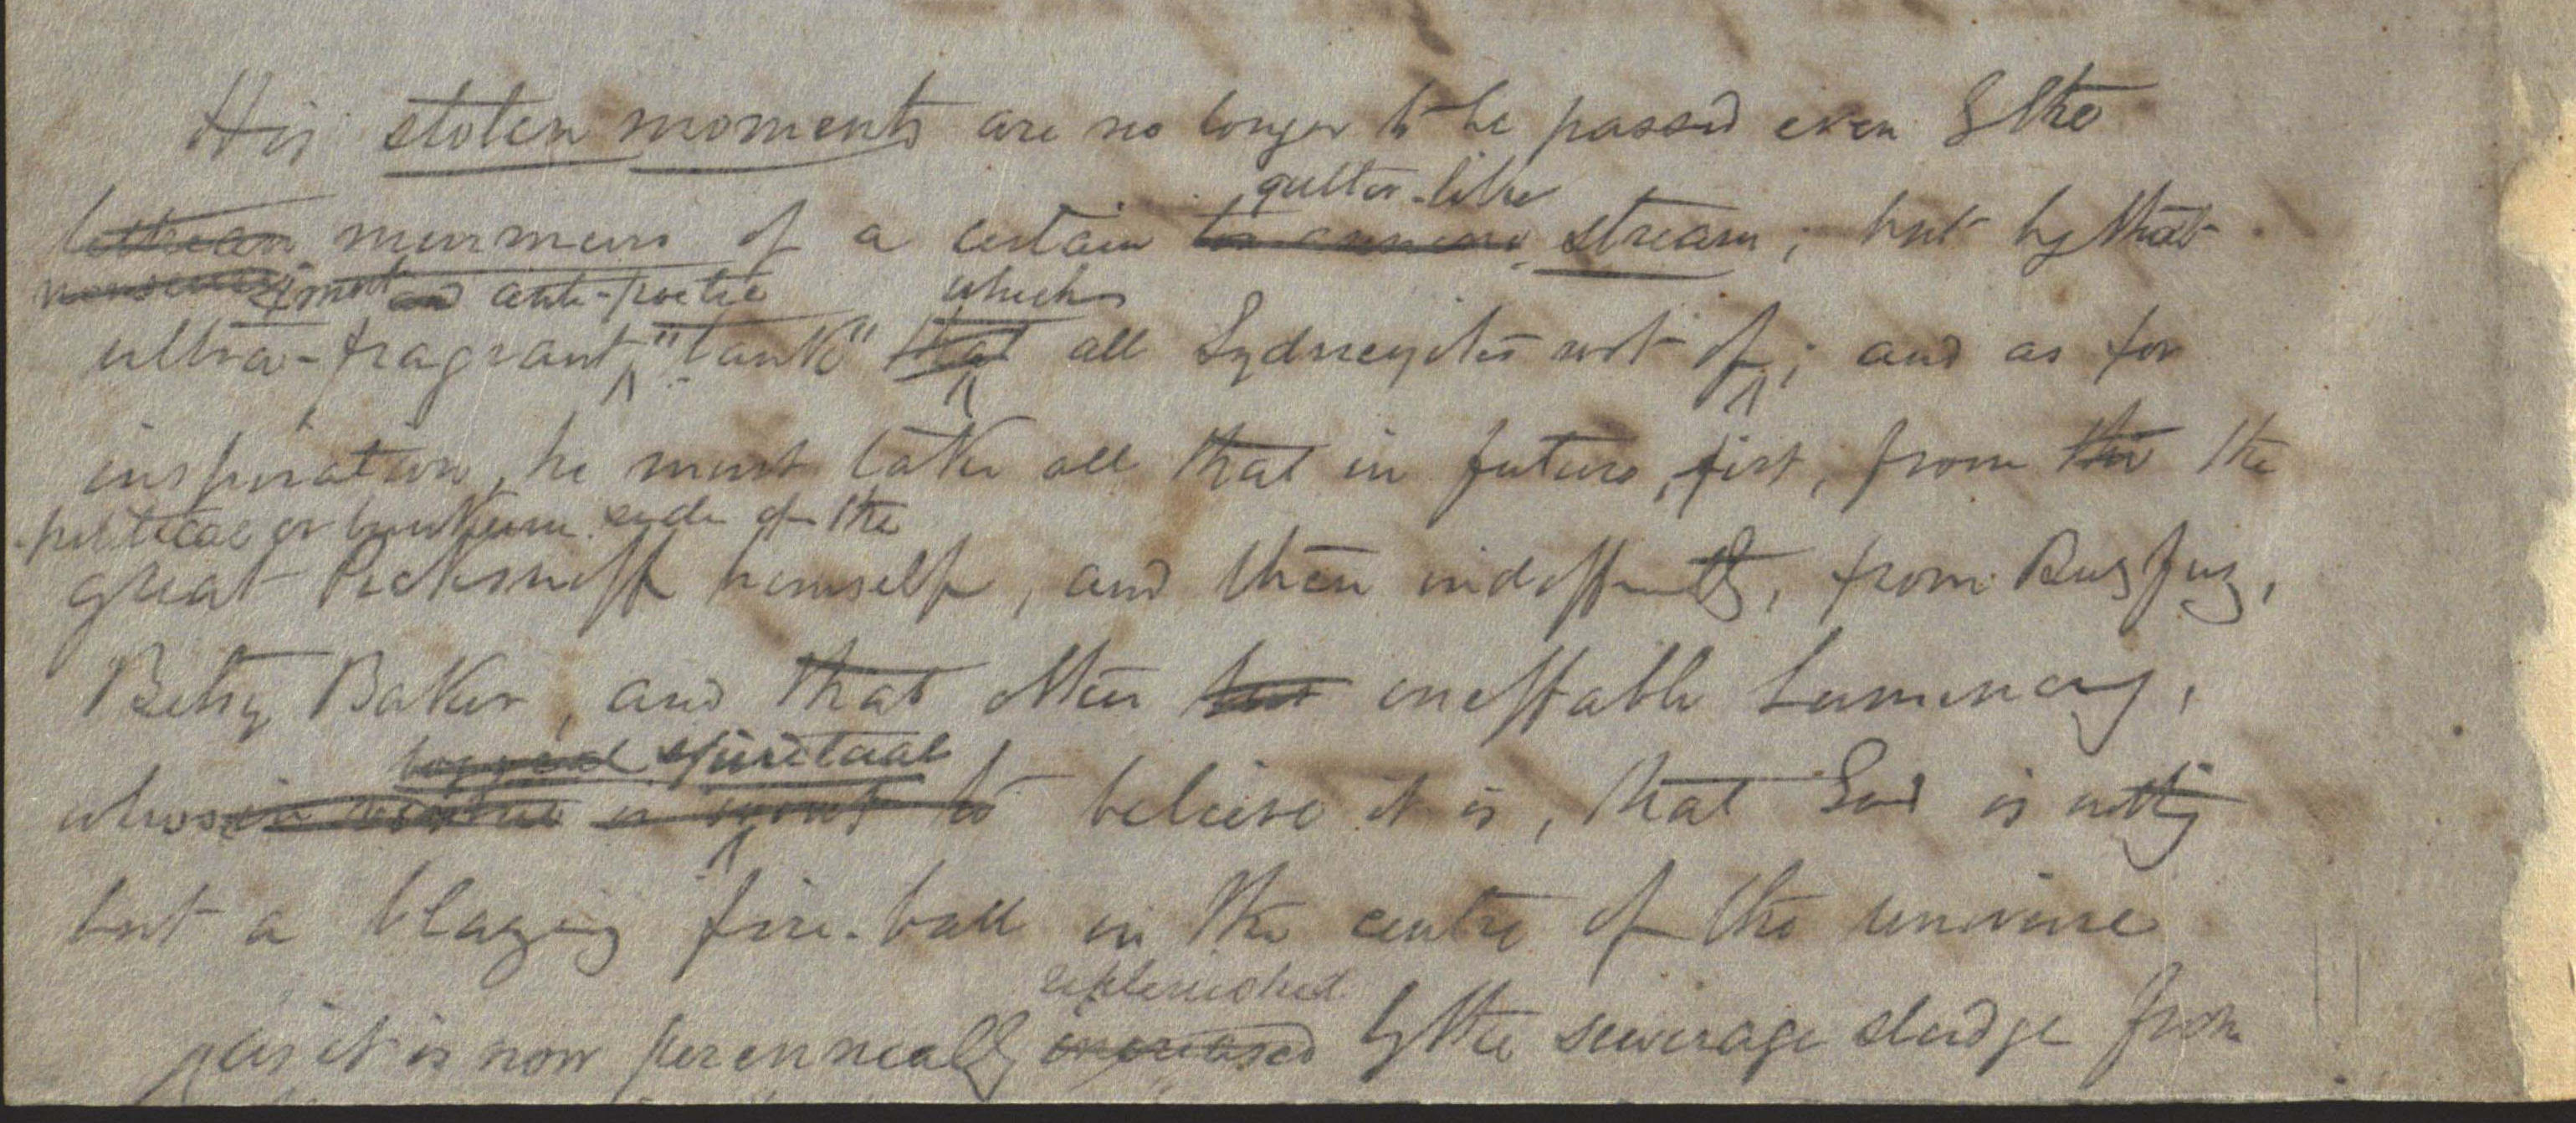 His stolen moments are no longer to be passed even by the
gutter-like
lethean murmurs of a certain stream; but by that
most and anti-poetic which
ultra-fragrant, "tank" that all Sydneyites wot of; and as for
inspiration, he must take all that in future, first, from the the
political or bunkum side of the
great Pecksniff himself, and then indifferently, from Buzfuz,
Betsy Baker, and that other ineffable Luminary,
spiritual
whose to believe it is, that God is nothing
but a blazing fire-ball in the centre of the universe
as it is now perennially increased by the sewerage sludge from
replenished